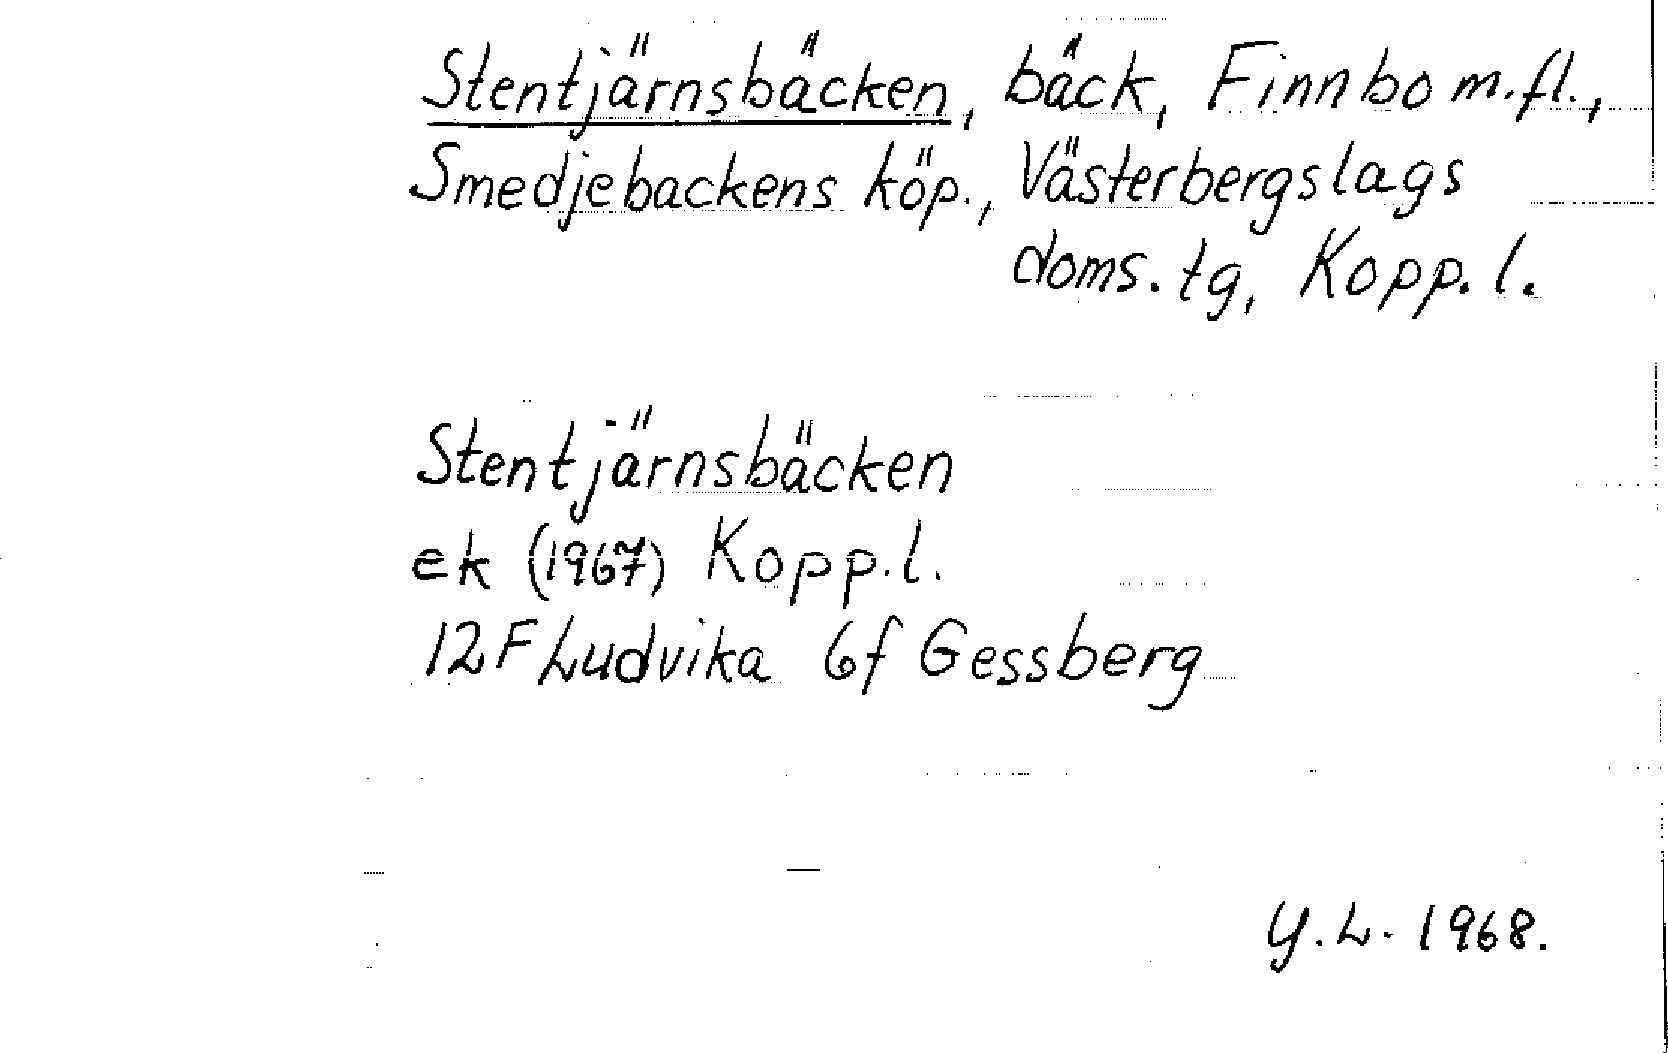 Stentjärnsbäcken, bäck, Finnbo m.fl.,
Smedjebackens köp., Västerbergslags
doms.tg, Kopp.l.
Stentjärnsbäcken
ek (1967) Kopp.l.
12F Ludvika 6f Gessberg
Y.L. 1968.